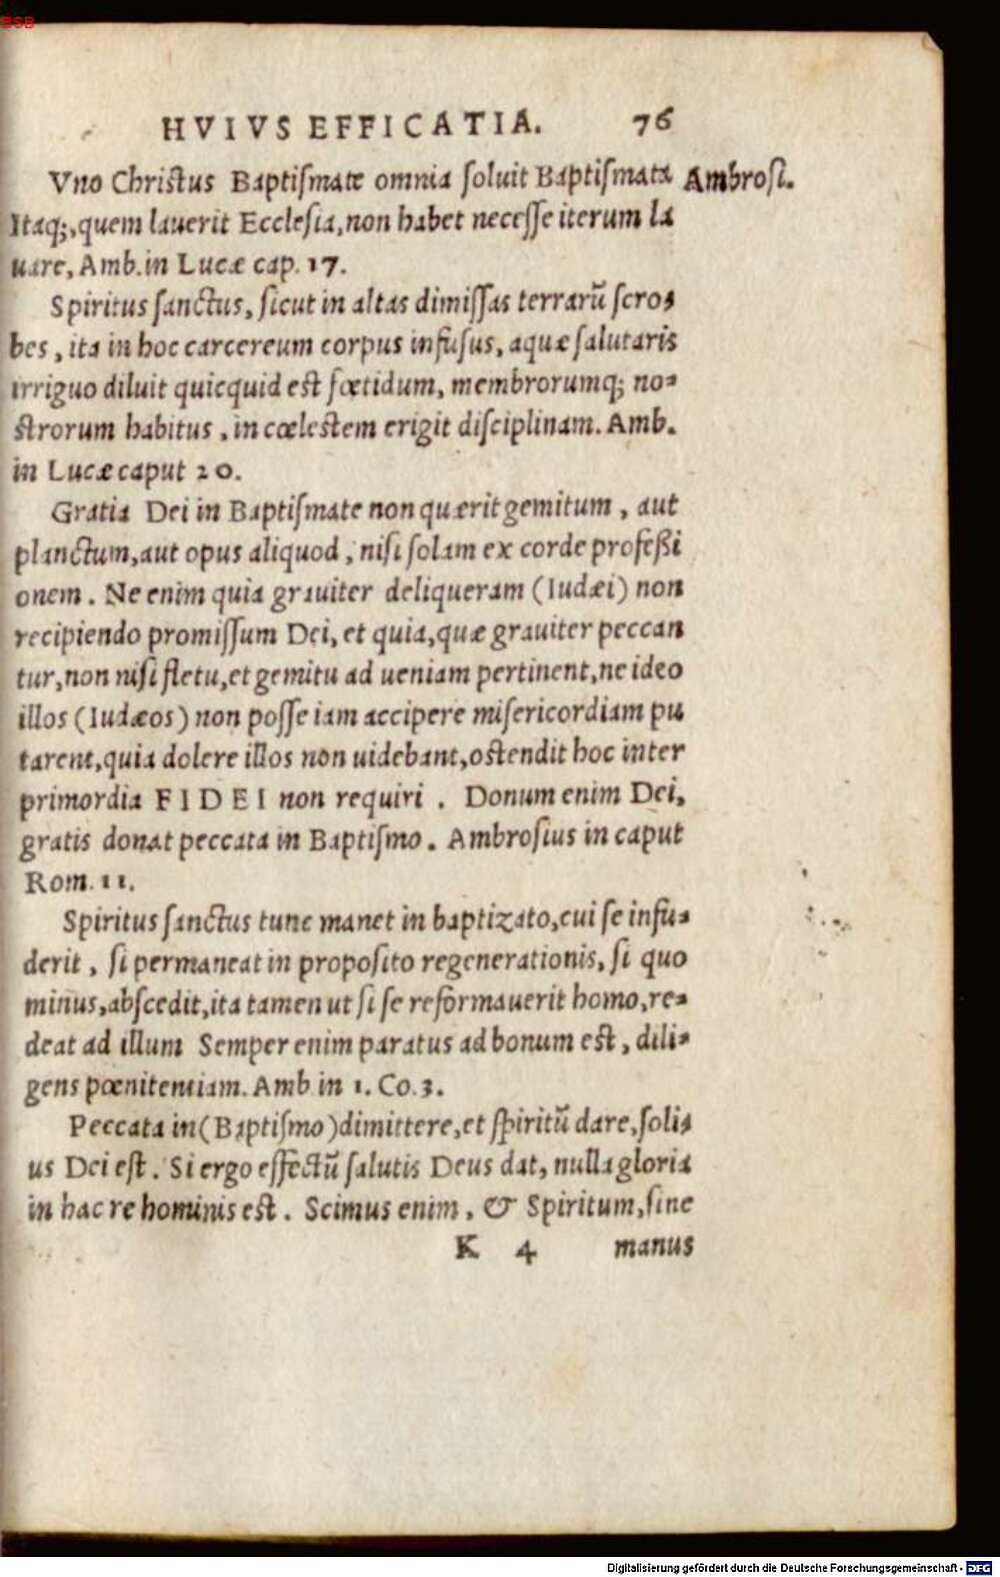 BSB
HVIVS EFFICATIA. 76
Vno Christus Baptiſmate omnia ſoluit Baptiſmata Ambroſi.
Itaq;, quem lauerit Ecclesia, non habet neceſſe iterum la
uare, Amb. in Lucæ cap. 17.
Spiritus ſanctus, ſicut in altas dimiſſas terrarũ ſcro-
bes, ita in hoc carcereum corpus infuſus, aquæ ſalutaris
irriguo diluit quicquid est fœtidum, membrorumq; no-
strorum habitus, in cœlestem erigit diſciplinam. Amb.
in Lucæ caput 20.
Gratia Dei in Baptiſmate non quærit gemitum, aut
planctum, aut opus aliquod, niſi ſolam ex corde profeßi
onem. Ne enim quia grauiter deliqueram (Iudæi) non
recipiendo promiſſum Dei, et quia, quæ grauiter peccan
tur, non niſi fletu, et gemitu ad ueniam pertinent, ne ideo
illos (Iudæos) non poſſe iam accipere miſericordiam pu
tarent, quia dolere illos non uidebant, ostendit hoc inter
primordia FIDEI non requiri. Donum enim Dei,
gratis donat peccata in Baptiſmo. Ambroſius in caput
Rom. 11.
Spiritus ſanctus tunc manet in baptizato, cui ſe infu-
derit, ſi permaneat in propoſito regenerationis, ſi quo
minus, abſcedit, ita tamen ut ſi ſe reformauerit homo, re-
deat ad illum Semper enim paratus ad bonum est, dili-
gens pœnitentiam. Amb in 1. Co. 3.
Peccata in (Baptiſmo) dimittere, et ſpiritũ dare, ſoli-
us Dei est. Si ergo effectũ ſalutis Deus dat, nulla gloria
in hac re hominis est. Scimus enim, & Spiritum, ſine
K 4 manus
Digitalisierung gefördert durch die Deutsche Forschungsgemeinschaft - DFG